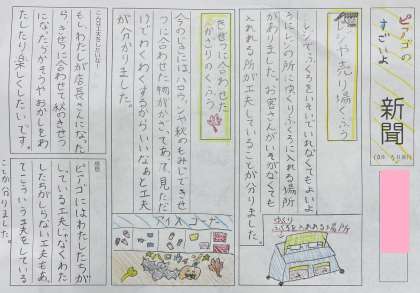 ピアゴの
すごいよ
新聞
レジや売り場のくふう
レジでふくろをいそいでいれなくてもよいよ
うにレジの所にゆっくりふくろに入れる場所
がありました。お客さんがいそがなくても
入れれる所が工夫していることが分かりました。
ゆっくり
ふくろを入れれる場所
きせつに合わせた
かざりのくふう
今のきせつは、ハロウィンや秋のもみじできせ
つに合わせた物がかざってあって、見ただ
けでわくわくするからいいなぁと工夫
が分かりました。
アイスコーナー
こんな工夫もしたいな!
もしわたしが店長さんになった
ら、きせつに合わせて秋のきせつ
になったらかそうやおかしをわ
たしたり楽しくしたいです。
感想
ピアゴにはわたしたちが
している工夫じゃなくわた
したちがしらない工夫もあっ
てこういう工夫をしている
ことが分かりました。